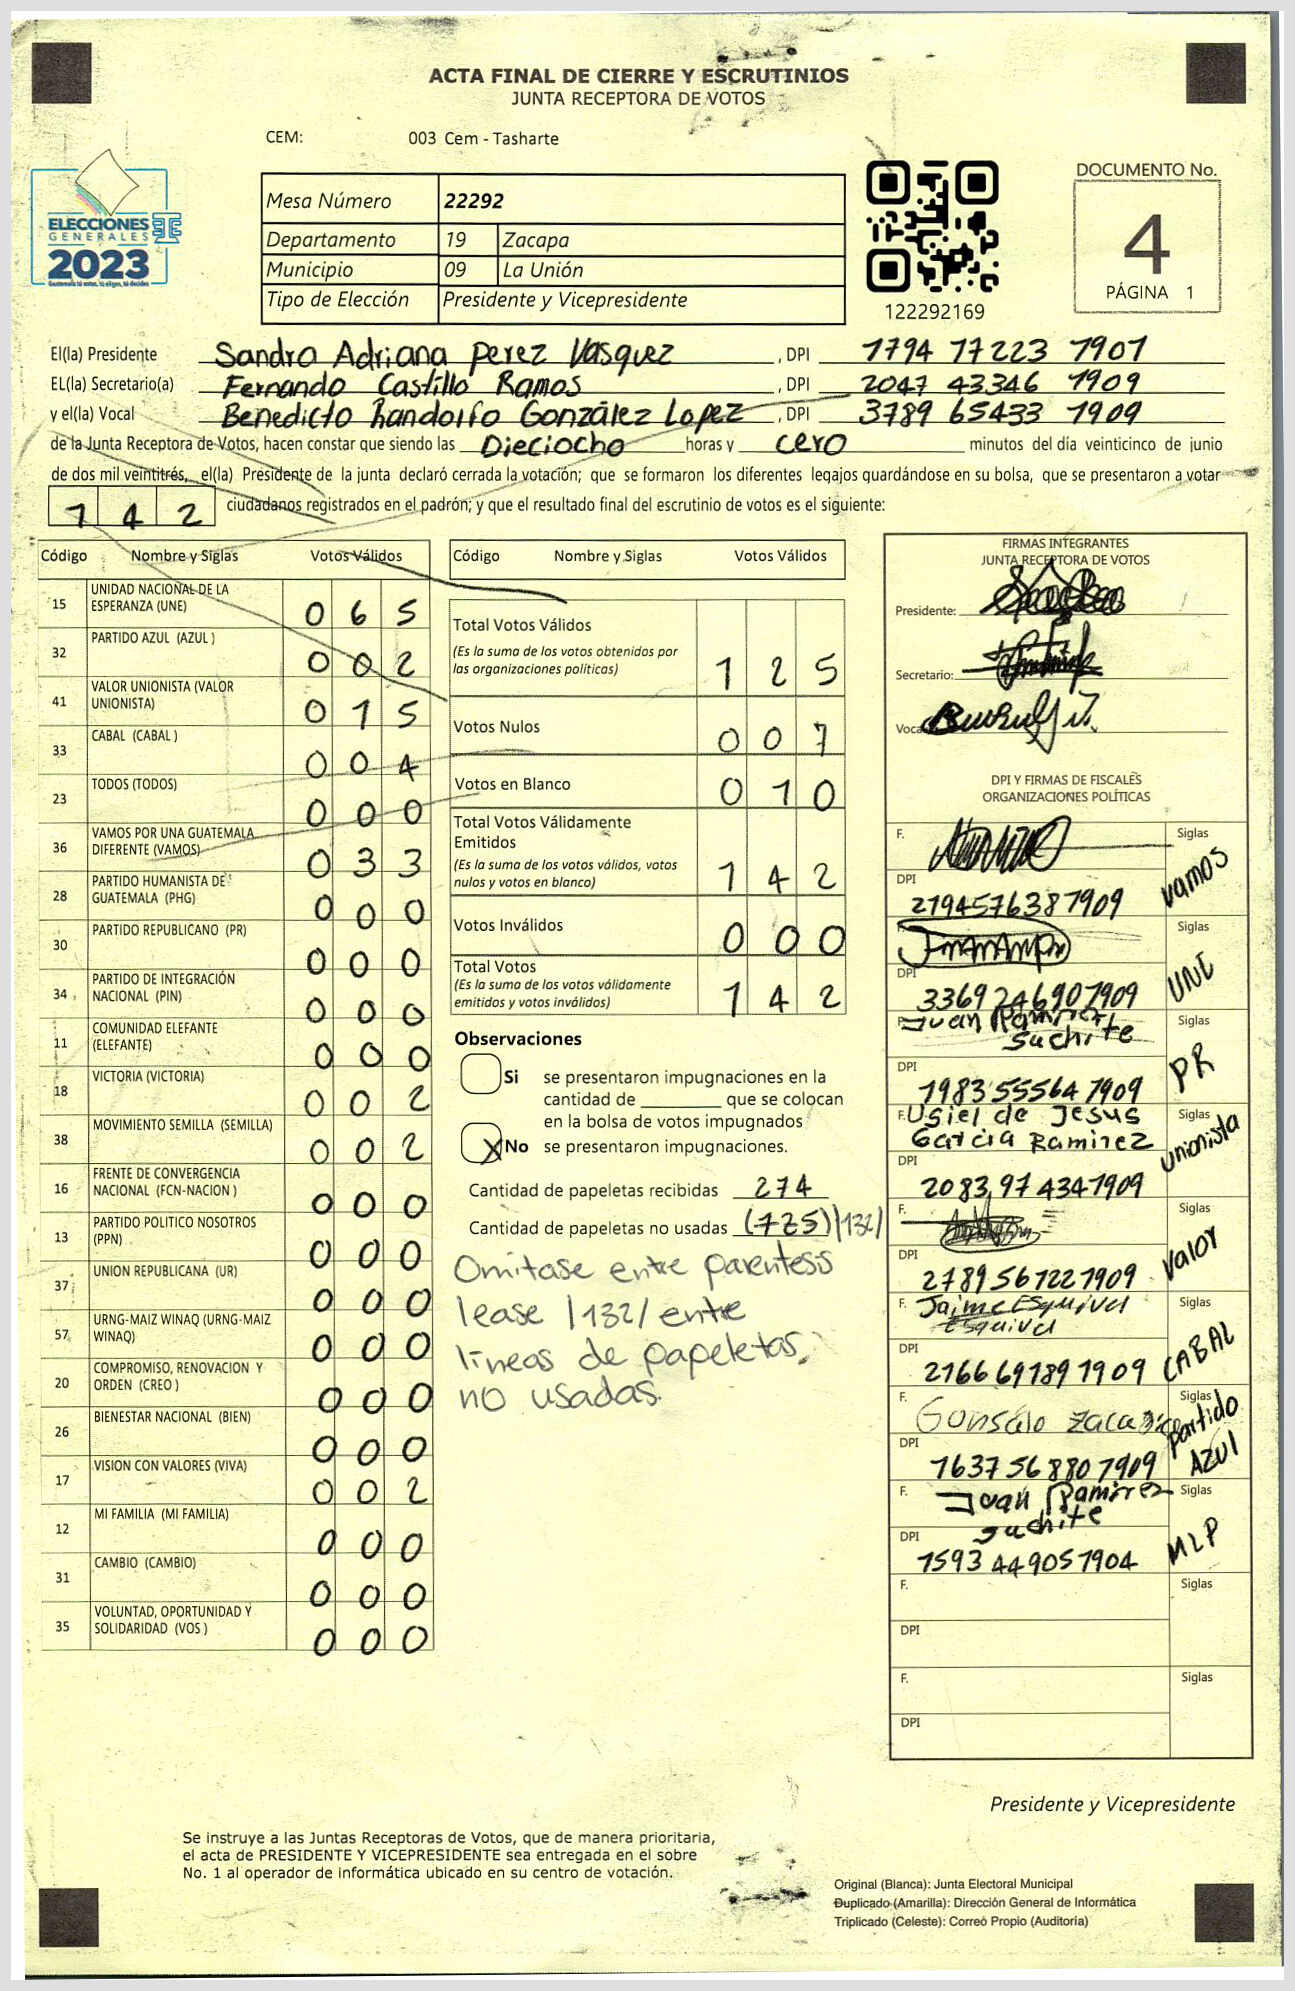 ACTA FINAL DE CIERRE Y ESCRUTINIOS
JUNTA RECEPTORA DE VOTOS
CEM: 003 Cem - Tasharte
ELECCIONES
GENERALES
2023
Mesa Número 22292
Departamento 19 Zacapa
Municipio 09 La Unión
Tipo de Elección Presidente y Vicepresidente
122292169
DOCUMENTO No.
4
PÁGINA 1
El(la) Presidente Sandra Adriana Perez Vasquez , DPI 1794 77223 1901
EL(la) Secretario(a) Fernando Castillo Ramos , DPI 2047 43346 1909
y el(la) Vocal Benedicto Randolfo González Lopez , DPI 3789 65433 1909
de la Junta Receptora de Votos, hacen constar que siendo las Dieciocho horas y cero minutos del día veinticinco de junio
de dos mil veintitrés, el(la) Presidente de la junta declaró cerrada la votación; que se formaron los diferentes legajos guardándose en su bolsa, que se presentaron a votar
142 ciudadanos registrados en el padrón; y que el resultado final del escrutinio de votos es el siguiente:
Código Nombre y Siglas Votos Válidos
15 UNIDAD NACIONAL DE LA
ESPERANZA (UNE) 065
32 PARTIDO AZUL (AZUL ) 002
41 VALOR UNIONISTA (VALOR
UNIONISTA) 015
33 CABAL (CABAL ) 004
23 TODOS (TODOS) 000
36 VAMOS POR UNA GUATEMALA
DIFERENTE (VAMOS) 033
28 PARTIDO HUMANISTA DE
GUATEMALA (PHG) 000
30 PARTIDO REPUBLICANO (PR) 000
34 PARTIDO DE INTEGRACIÓN
NACIONAL (PIN) 000
11 COMUNIDAD ELEFANTE
(ELEFANTE) 000
18 VICTORIA (VICTORIA) 002
38 MOVIMIENTO SEMILLA (SEMILLA) 002
16 FRENTE DE CONVERGENCIA
NACIONAL (FCN-NACION ) 000
13 PARTIDO POLITICO NOSOTROS
(PPN) 000
37 UNION REPUBLICANA (UR) 000
57 URNG-MAIZ WINAQ (URNG-MAIZ
WINAQ) 000
20 COMPROMISO, RENOVACION Y
ORDEN (CREO ) 000
26 BIENESTAR NACIONAL (BIEN) 000
17 VISION CON VALORES (VIVA) 002
12 MI FAMILIA (MI FAMILIA) 000
31 CAMBIO (CAMBIO) 000
35 VOLUNTAD, OPORTUNIDAD Y
SOLIDARIDAD (VOS ) 000
Código Nombre y Siglas Votos Válidos
Total Votos Válidos
(Es la suma de los votos obtenidos por
las organizaciones políticas) 125
Votos Nulos 007
Votos en Blanco 010
Total Votos Válidamente
Emitidos
(Es la suma de los votos válidos, votos
nulos y votos en blanco) 142
Votos Inválidos 000
Total Votos
(Es la suma de los votos válidamente
emitidos y votos inválidos) 142
Observaciones
Si se presentaron impugnaciones en la
cantidad de ________ que se colocan
en la bolsa de votos impugnados
X No se presentaron impugnaciones.
Cantidad de papeletas recibidas 274
Cantidad de papeletas no usadas (125) |132/
Omitase entre parentesis
lease |132/ entre
lineas de papeletas
no usadas.
FIRMAS INTEGRANTES
JUNTA RECEPTORA DE VOTOS
Presidente:
Secretario:
Vocal
DPI Y FIRMAS DE FISCALES
ORGANIZACIONES POLÍTICAS
F. Siglas
vamos
DPI
2194576387909
Siglas
UNE
DPI
3369246901909
F. Juan Ramirez Siglas
Suchite
PR
DPI
1983555641909
F. Usiel de Jesus Siglas
Garcia Ramirez
unionista
DPI
2083974341909
F.
valor
DPI
2789567221909
F. Jaime Esquivel Siglas
Esquivel
CABAL
DPI
2166691891909
F. Gonsalo Siglas
partido
AZUL
DPI
1637568801909
F. Juan Ramirez Siglas
suchite
MLP
DPI
1593449051904
F. Siglas
DPI
F. Siglas
DPI
Presidente y Vicepresidente
Se instruye a las Juntas Receptoras de Votos, que de manera prioritaria,
el acta de PRESIDENTE Y VICEPRESIDENTE sea entregada en el sobre
No. 1 al operador de informática ubicado en su centro de votación.
Original (Blanca): Junta Electoral Municipal
Duplicado (Amarilla): Dirección General de Informática
Triplicado (Celeste): Correo Propio (Auditoría)